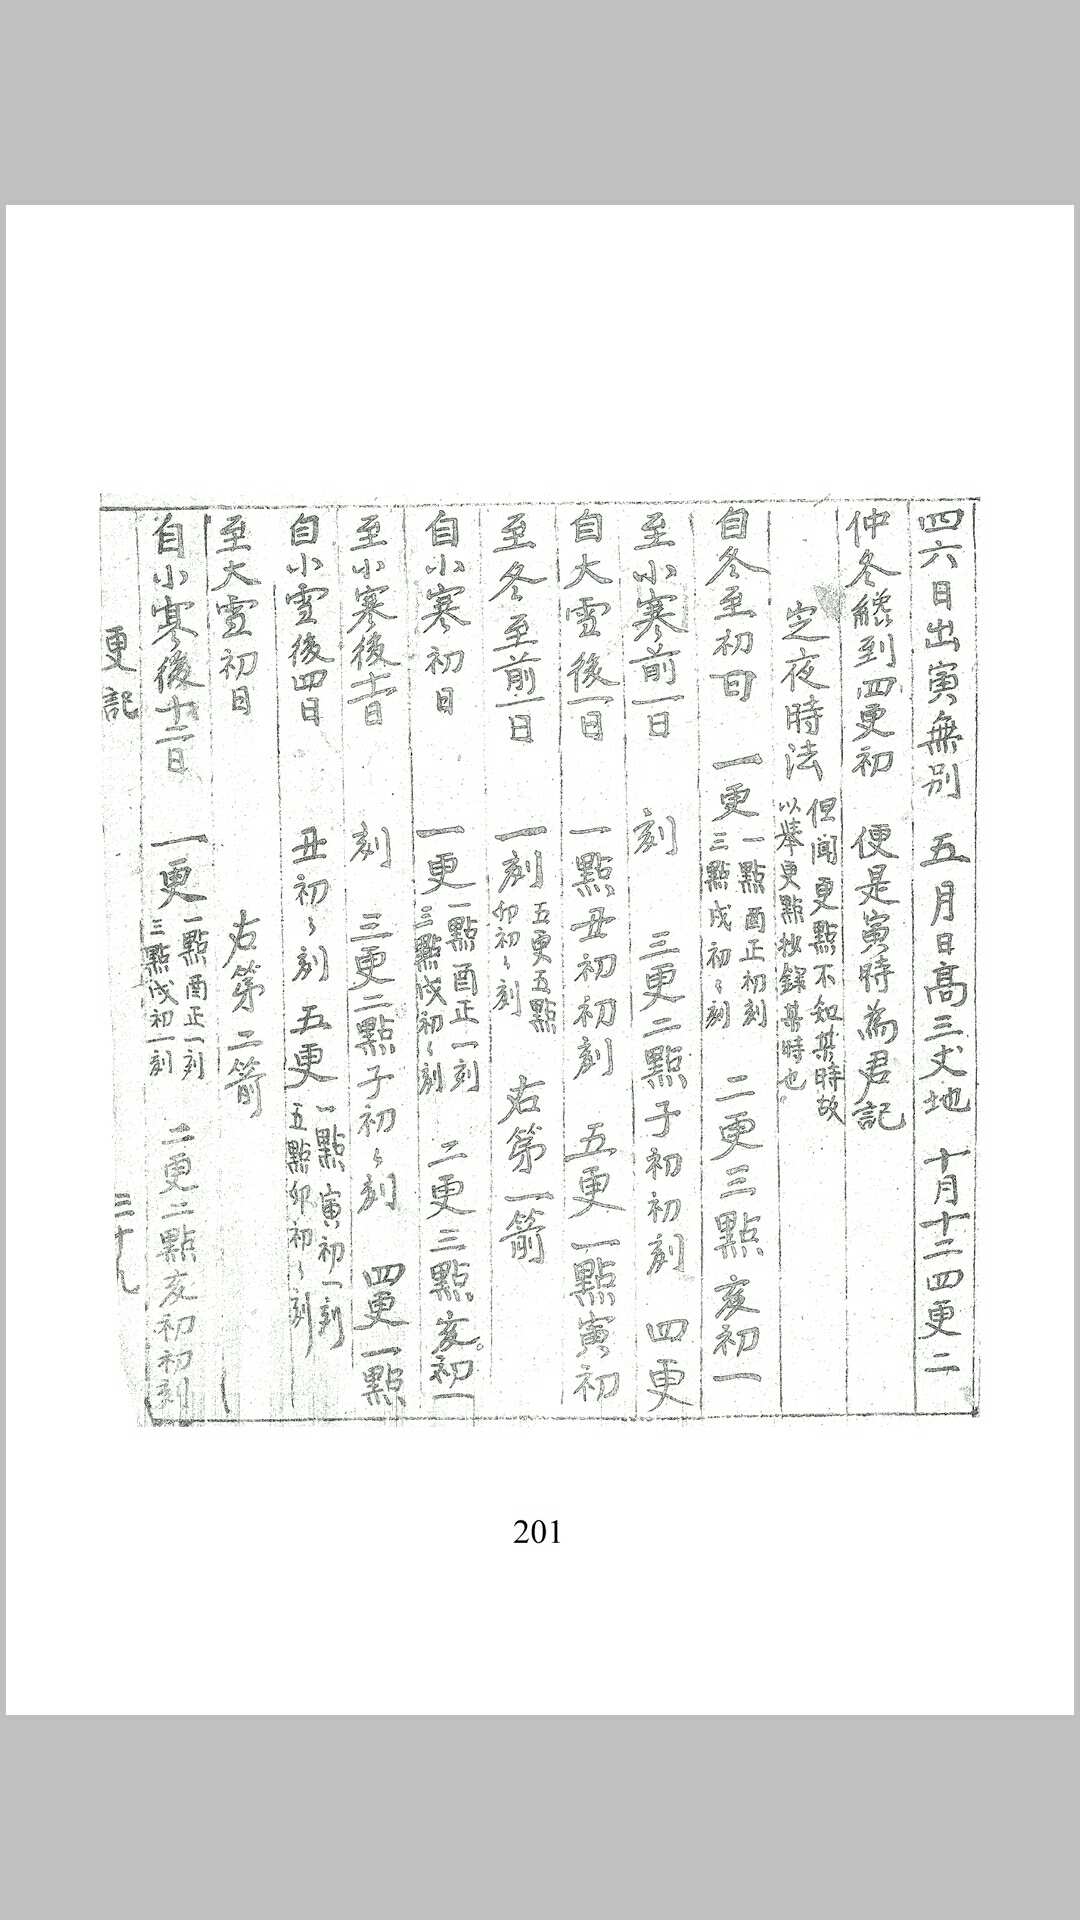 四六日出寅無別 五月日高三丈地 十月十二四更二
仲冬纔到四更初 便是寅時為君記
定夜時法 但聞更點不知某時故
以擧更點抄錄某時也
自冬至初日 一更 一點酉正初刻 三點戌初〻刻 二更三點亥初一
至小寒前一日 刻 三更二點子初初刻 四更
自大雪後一日 一點丑初初刻 五更一點寅初
至冬至前一日 一刻 五更五點 卯初〻刻 右第一箭
自小寒初日 一更 一點酉正一刻 三點戌初〻刻 二更三點亥初一
至小寒後十一日 刻 三更二點子初〻刻 四更一點
自小雪後四日 丑初〻刻 五更 一點寅初一刻 五點卯初〻刻
至大雪初日 右第二箭
自小寒後十二日 一更 一點酉正一刻 三點戌初一刻 二更二點亥初初刻
更記 三十九
201